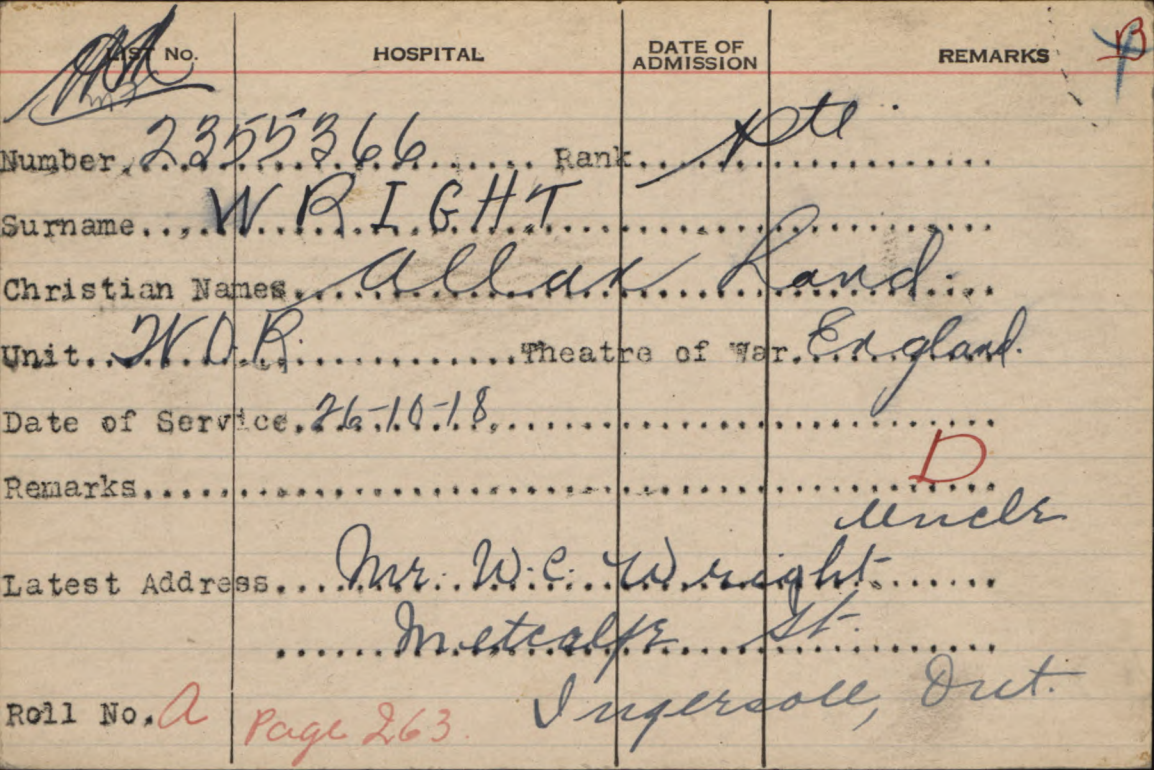 LIST No. HOSPITAL DATE OF ADMISSION REMARKS B
Number 2355366 Rank Pte
Surname WRIGHT
Christian Names Allan Rand
Unit W.O.R. Theatre of War England.
Date of Service 26-10-18
D
Remarks
Uncle
Latest Address Mr. W.C. Wright
Metcalfe St.
Ingersoll, Ont.
Roll No. A Page 263.